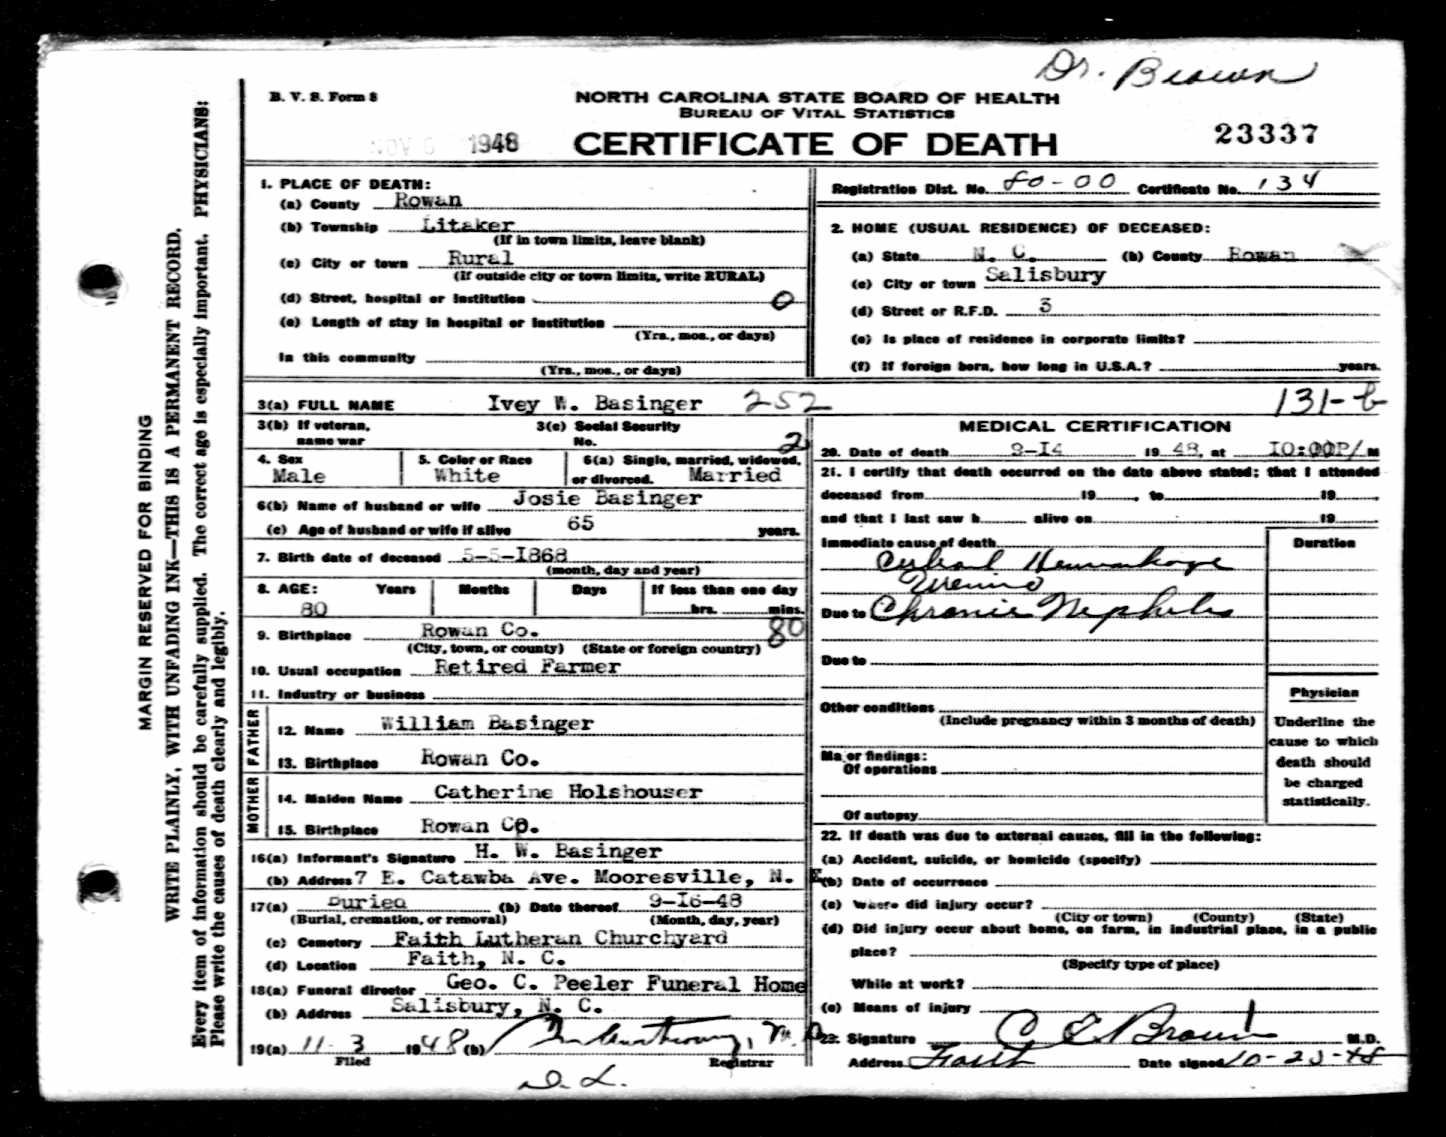 Dr. Brown
B. V. S. Form 8
NORTH CAROLINA STATE BOARD OF HEALTH
BUREAU OF VITAL STATISTICS
NOV 6 1948
CERTIFICATE OF DEATH
23337
1. PLACE OF DEATH:
(a) County Rowan
(b) Township Litaker
(If in town limits, leave blank)
(c) City or town Rural
(If outside city or town limits, write RURAL)
(d) Street, hospital or institution 0
(e) Length of stay in hospital or institution
(Yrs., mos., or days)
In this community
(Yrs., mos., or days)
Registration Dist. No. 80-00 Certificate No. 134
2. HOME (USUAL RESIDENCE) OF DECEASED:
(a) State N. C. (b) County Rowan
(c) City or town Salisbury
(d) Street or R.F.D. 3
(e) Is place of residence in corporate limits?
(f) If foreign born, how long in U.S.A.? years.
3(a) FULL NAME Ivey W. Basinger 252
131-b
3(b) If veteran, name war
3(c) Social Security No.
2
4. Sex Male
5. Color or Race White
6(a) Single, married, widowed, or divorced. Married
6(b) Name of husband or wife Josie Basinger
(c) Age of husband or wife if alive 65 years.
7. Birth date of deceased 5-5-1868
(month, day and year)
8. AGE: Years Months Days If less than one day
80 hrs. mins.
9. Birthplace Rowan Co. 80
(City, town, or county) (State or foreign country)
10. Usual occupation Retired Farmer
11. Industry or business
FATHER
12. Name William Basinger
13. Birthplace Rowan Co.
MOTHER
14. Maiden Name Catherine Holshouser
15. Birthplace Rowan Co.
16(a) Informant's Signature H. W. Basinger
(b) Address 7 E. Catawba Ave. Mooresville, N.
17(a) Buried (b) Date thereof 9-16-48
(Burial, cremation, or removal) (Month, day, year)
(c) Cemetery Faith Lutheran Churchyard
(d) Location Faith, N. C.
18(a) Funeral director Geo. C. Peeler Funeral Home
(b) Address Salisbury, N. C.
19(a) 11-3 1948 (b)
Filed Registrar
MEDICAL CERTIFICATION
20. Date of death 9-14 1948, at 10:00P/M
21. I certify that death occurred on the date above stated; that I attended
deceased from 19 , to 19 ,
and that I last saw h alive on 19
Immediate cause of death Duration
Cerebral Hemorrhage
Uremia
Due to Chronic Nephritis
Due to
Other conditions
(Include pregnancy within 3 months of death)
Major findings:
Of operations
Of autopsy
Physician
Underline the
cause to which
death should
be charged
statistically.
22. If death was due to external causes, fill in the following:
(a) Accident, suicide, or homicide (specify)
(b) Date of occurrence
(c) Where did injury occur?
(City or town) (County) (State)
(d) Did injury occur about home, on farm, in industrial place, in a public
place?
(Specify type of place)
While at work?
(e) Means of injury
23. Signature C E Brown M.D.
Address Faith Date signed 10-23-48
MARGIN RESERVED FOR BINDING
WRITE PLAINLY, WITH UNFADING INK—THIS IS A PERMANENT RECORD.
Every item of information should be carefully supplied. The correct age is especially important. PHYSICIANS:
Please write the causes of death clearly and legibly.